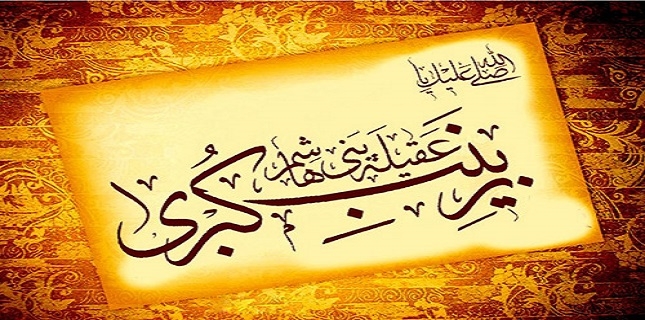 صلی الله علیک یا
زینب کبری
عَقیلَة بَنی هاشم